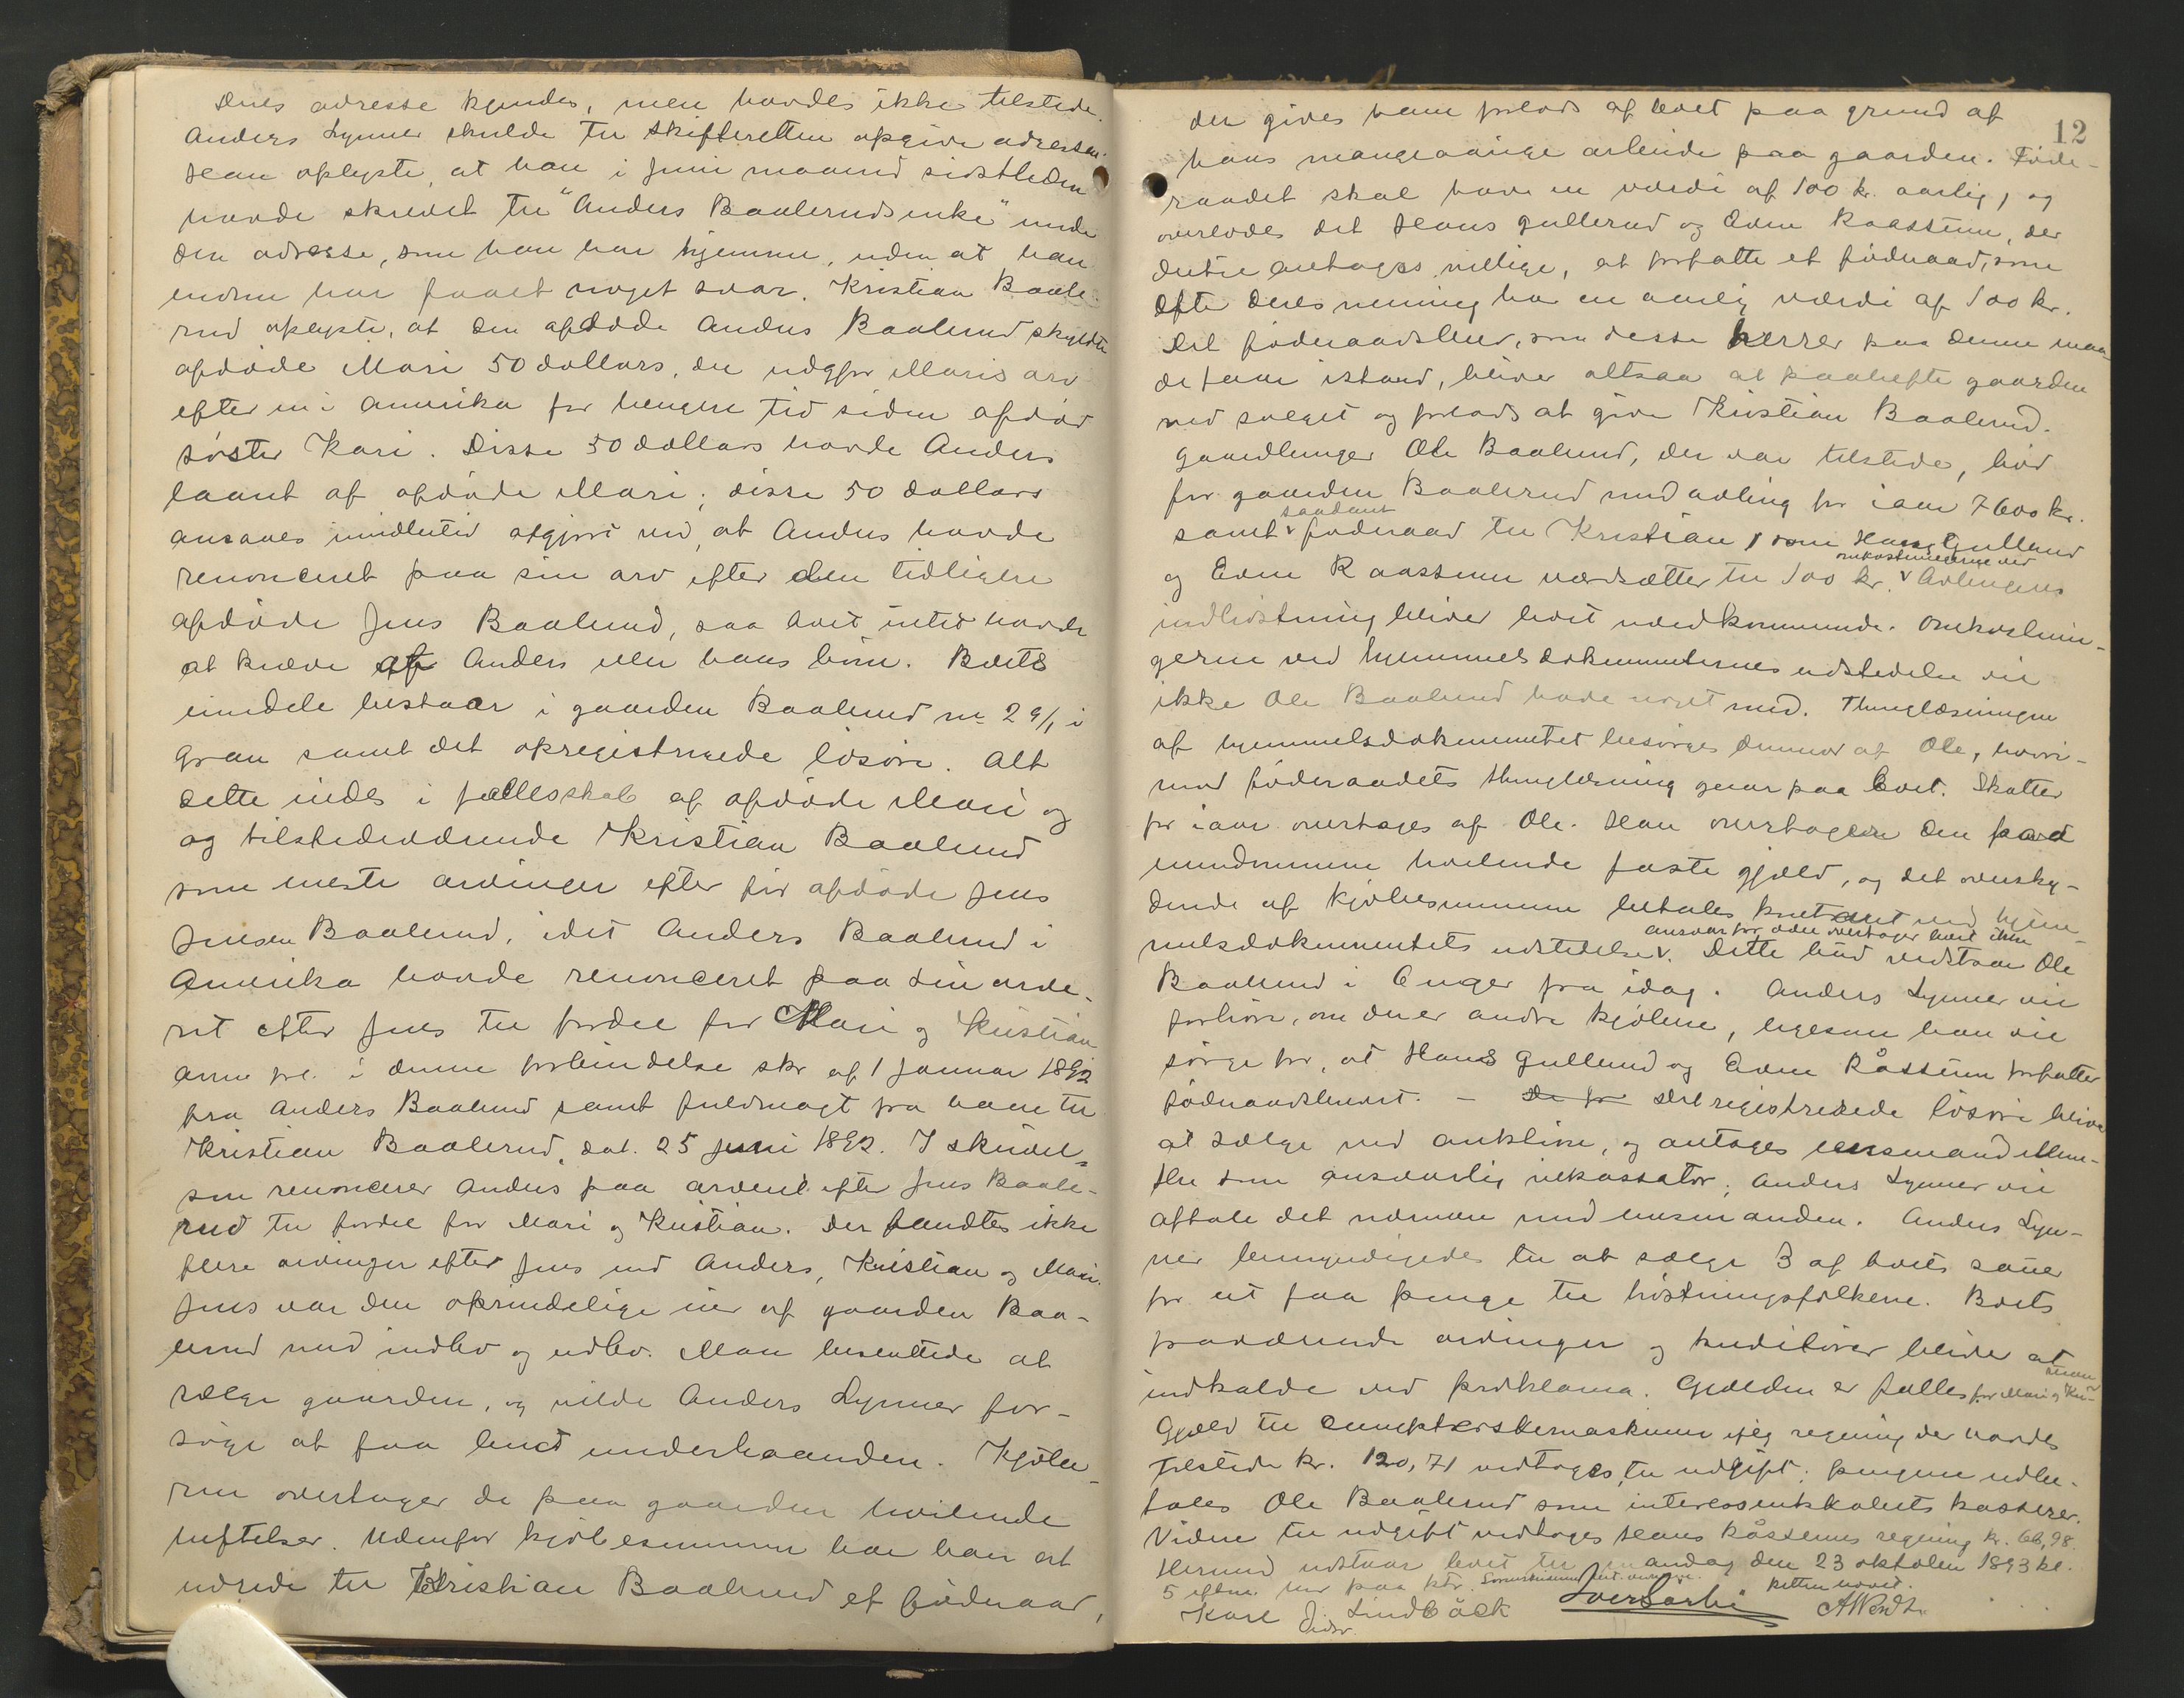 Deres adresse kjendes, men havdes ikke tilstede.
Anders Lynner skulde til skifteretten opgive adressen.
Han oplyste, at han i Juni maaned sidstleden
havde skrevet til "Anders Baaleruds enke" under
den adresse, som han har hjemme, uden at han
endnu har faaet noget svar. Kristian Baale-
rud oplyste, at den afdøde Anders Baalerud skyldte
afdøde Mari 50 dollars, der udgjør Maris arv
efter en i Amerika for længere tid siden afdød
søster Kari. Disse 50 dollars havde Anders
laant af afdøde Mari; disse 50 dollars
ansaaes imidlertid afgjort ved, at Anders havde
renonceret paa sin arv efter den tidligere
afdøde Jens Baalerud, saa boet intet havde
at kræve af Anders eller hans børn. Boets
eiendele bestaar i gaarden Baalerud no 29/1 i
Gran samt det opregistrerede løsøre. Alt
dette eiedes i fællesskab af afdøde Mari og
og tilstedeværende Kristian Baalerud
som eneste arvinger efter før afdøde Jens
Jensen Baalerud, idet Anders Baalerud i
Amerika havde renonceret paa sin arve-
ret efter Jens til fordel for Mari og Kristian
i denne forbindelse skr. af 1 Januar 1892
fra Anders Baalerud samt fuldmagt fra ham til
Kristian Baalerud, dat. 25 juni 1892. I skrivel-
sen renoncerer Anders paa arven efter Jens Baale-
rud til fordel for Mari og Kristian. Der fandtes ikke
flere arvinger efter Jens end Anders, Kristian og Mari.
Jens var den oprindelige eier af gaarden Baa-
lerud med indbo og udbo. Man besluttede at
sælge gaarden, og vilde Anders Lynner for-
søge at faa bud underhaanden. Kjøbe-
ren overtager de paa gaarden hvilende
heftelser. Udenfor kjøbesummen har han at
udrede til Kristian Baalerud et føderaad,
12
der gives ham forlods af boet paa grund af
hans mangeaarige arbeide paa gaarden. Føde-
raadet skal have en værdi af 100 kr. aarlig, og
overlodes det Hans Gullerud og Even Raassum, der
dertil antages villige, at forfatte et føderaad, som
efter deres mening har en aarlig værdi af 100 kr.
Det føderaadsbrev, som disse herrer paa denne maa-
de faar istand, bliver altsaa at paahefte gaarden
ved salget og forlods at give Kristian Baalerud.
Gaardbruger Ole Baalerud, der var tilstede, bød
for gaarden Baalerud med avling for iaar 7600 kr.
samt saadant føderaad til Kristian, som Hans Gullerud
og Even Raassum værdsætter til 100 kr. omkostningerne ved Avlingens
indhøstning bliver boet uvedkommende. Omkostnin-
gerne ved hjemmelsdokumenternes udstedelse vil
ikke Ole Baalerud have noget med. Thinglæsningen
af hjemmelsdokumentet besørges derimod af Ole, hvori-
mod føderaadets thinglæsning gaar paa boet. Skatter
for iaar overtages af Ole. Han overtager den paa
eiendommen hvilende faste gjæld, og det oversky-
dende af kjøbesummen betales kontant ved hjem-
melsdokumentets udstedelse. ansvar for odel overtager boet ikke Dette bud vedstaar Ole
Baalerud i 6 uger fra idag. Anders Lynner vil
forhøre, om der er andre kjøbere, ligesom han vil
sørge for, at Hans Gullerud og Even Råssum forfatter
føderaadsbrevet. — De for Det registrerede løsøre bliver
at sælge ved auktion, og antages lensmand
som ansvarlig inkassator; Anders Lynner vil
aftale det nærmere med lensmanden. Anders Lyn-
ner bemyndigedes til at sælge 3 af boets sauer
for at faa penge til høstningsfolkene. Boets
paaværende arvinger og kreditorer bliver at
indkalde ved proklama. Gjælden er fælles for Mari og Kri-
Gjæld til regning der havdes
tilstede kr. 120,71 vedtoges til udgift; pengene udbe-
tales Ole Baalerud som interessentskabets kasserer.
Videre til udgift vedtoges Hans Råssums regning kr. 66,98.
Hermed udstaar boet til mandag den 23 oktober 1893 kl.
5 efterm. her paa ktr.
Retten hævet.
Karl J. Lindbäck
Iver Sørli
AWendt